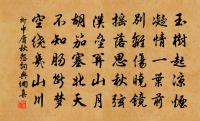 玉樹起涼煙
凝情一葉前
別離傷曉鏡
搖落思秋弦
漢壘關山月
胡笳塞北天
不知腸斷夢
空繞幾山川
柳中庸秋怨詞典網集